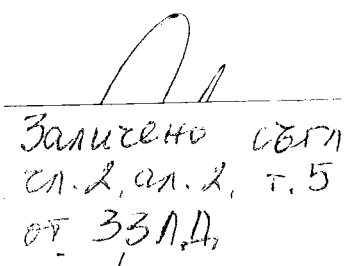 Заличено съгл
чл.2, ал.2, т.5
от ЗЗЛД,